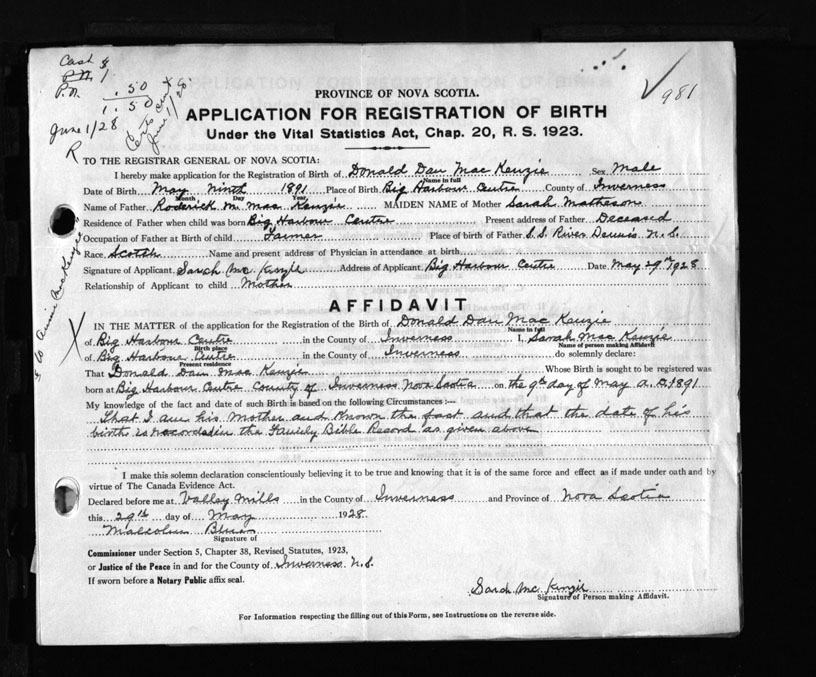 Cash $
P.N. 1
P.N. .50
1.50
June 1/28
981
PROVINCE OF NOVA SCOTIA.
APPLICATION FOR REGISTRATION OF BIRTH
Under the Vital Statistics Act, Chap. 20, R. S. 1923.
TO THE REGISTRAR GENERAL OF NOVA SCOTIA:
I hereby make application for the Registration of Birth of Donald Dan Mac Kenzie Sex Male
Name in full
Date of Birth May Ninth 1891 Place of Birth Big Harbour Centre County of Inverness
Month Day Year
Name of Father Roderick M. Mac Kenzie MAIDEN NAME of Mother Sarah Matheson
Residence of Father when child was born Big Harbour Centre Present address of Father Deceased
Occupation of Father at Birth of child Farmer Place of birth of Father S.S. River Dennis N.S.
Race Scotch Name and present address of Physician in attendance at birth
Signature of Applicant Sarah Mc Kenzie Address of Applicant Big Harbour Centre Date May 29th 1928
Relationship of Applicant to child Mother
AFFIDAVIT
IN THE MATTER of the application for the Registration of the Birth of Donald Dan Mac Kenzie
Name in full
of Big Harbour Centre in the County of Inverness I, Sarah Mac Kenzie
Birth place Name of person making Affidavit
of Big Harbour Centre in the County of Inverness do solemnly declare:
Present residence
That Donald Dan Mac Kenzie Whose Birth is sought to be registered was
born at Big Harbour Centre County of Inverness Nova Scotia on the 9th day of May A.D. 1891
My knowledge of the fact and date of such Birth is based on the following Circumstances :—
That I am his Mother and Known the fact and that the date of his
birth is recorded in the Family Bible Record as given above
I make this solemn declaration conscientiously believing it to be true and knowing that it is of the same force and effect as if made under oath and by
virtue of The Canada Evidence Act.
Declared before me at Valley Mills in the County of Inverness and Province of Nova Scotia
this 29th day of May 1928
Malcolm Blue
Signature of
Commissioner under Section 5, Chapter 38, Revised Statutes, 1923,
or Justice of the Peace in and for the County of Inverness N.S.
If sworn before a Notary Public affix seal.
Sarah Mc Kenzie
Signature of Person making Affidavit.
For Information respecting the filling out of this Form, see Instructions on the reverse side.